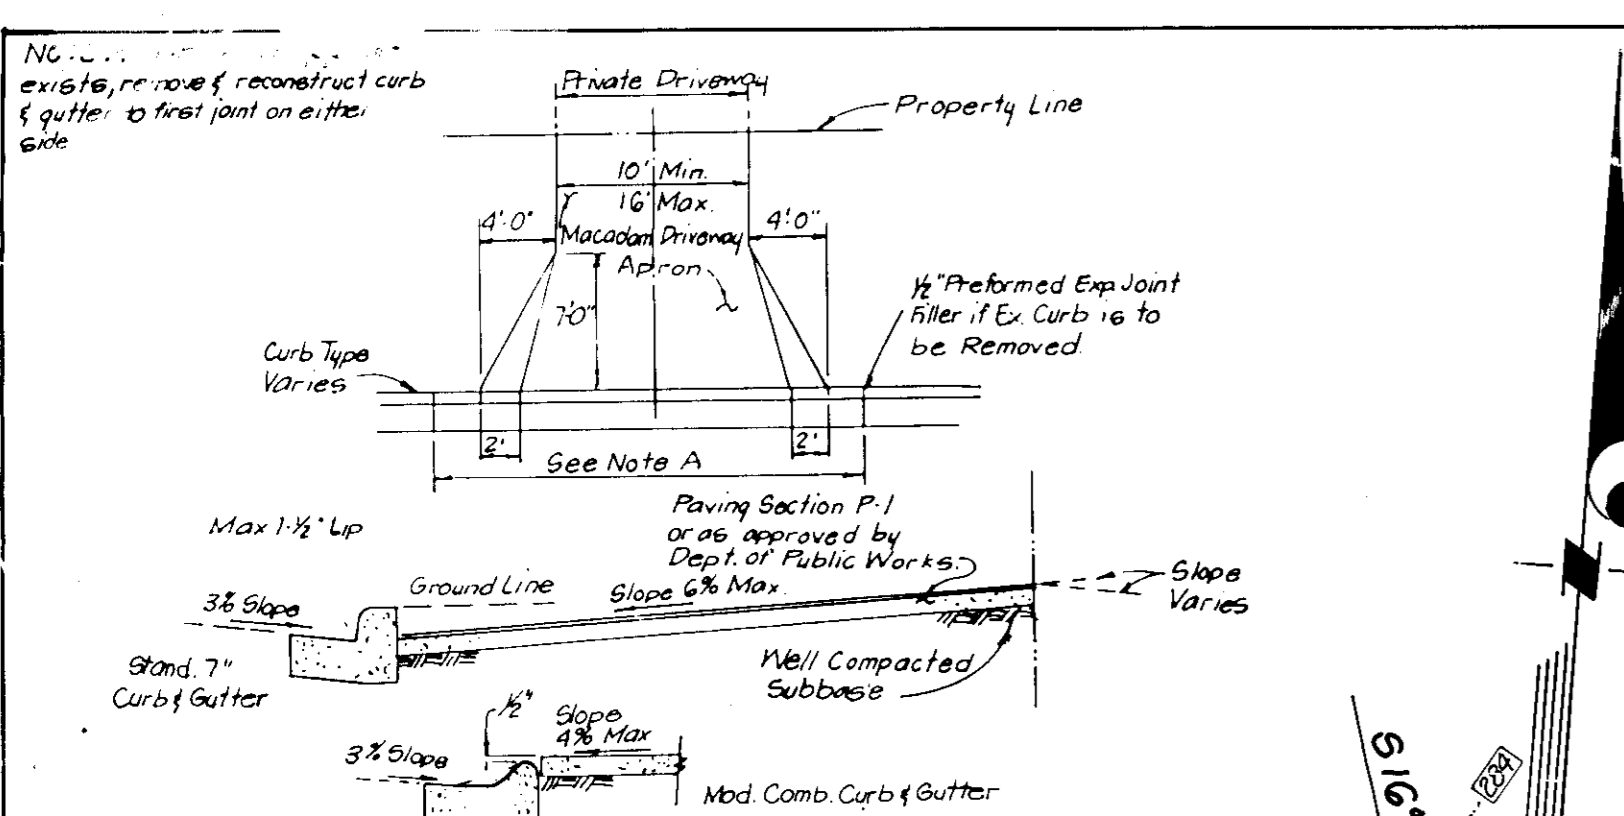 exists, remove & reconstruct curb
& gutter to first joint on either
side
Private Driveway
Property Line
10' Min.
16' Max.
4'-0"
4'-0"
Macadam Driveway
Apron
7'-0"
1/2" Preformed Exp Joint
Filler if Ex. Curb is to
be Removed.
Curb Type
Varies
2'
2'
See Note A
Paving Section P-1
or as approved by
Dept. of Public Works.
Max 1-1/2" Lip
Ground Line
Slope 6% Max.
3% Slope
Slope
Varies
Well Compacted
Subbase
Stand. 7"
Curb & Gutter
1/2"
Slope
4% Max
3% Slope
Mod. Comb. Curb & Gutter
S 16°
234